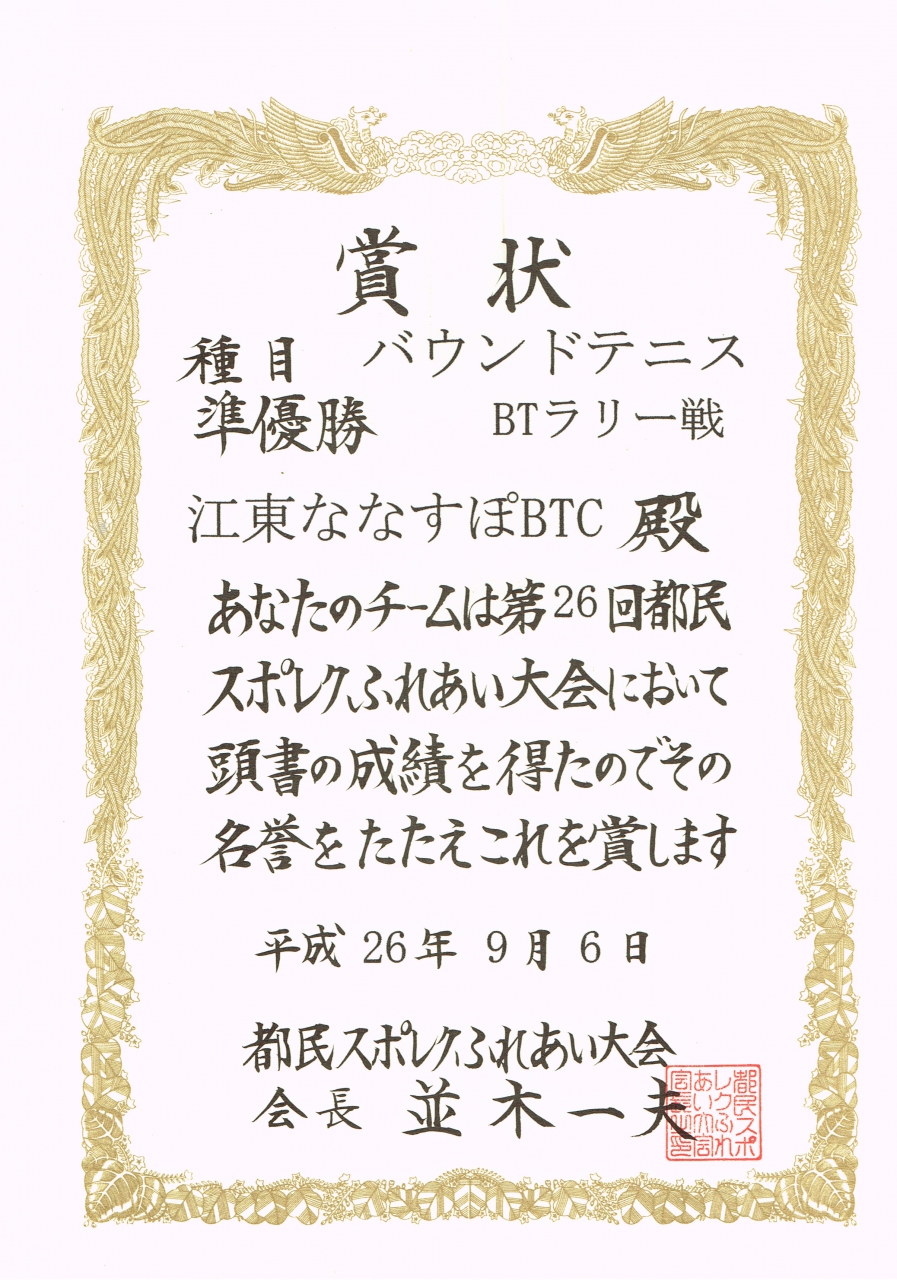 賞状
種目 バウンドテニス
準優勝 BTラリー戦
江東ななすぽBTC 殿
あなたのチームは第26回都民
スポレクふれあい大会において
頭書の成績を得たのでその
名誉をたたえこれを賞します
平成 26年 9月 6日
都民スポレクふれあい大会
会長 並木一夫
都民スポ
レクふれ
あい大会
会長之印